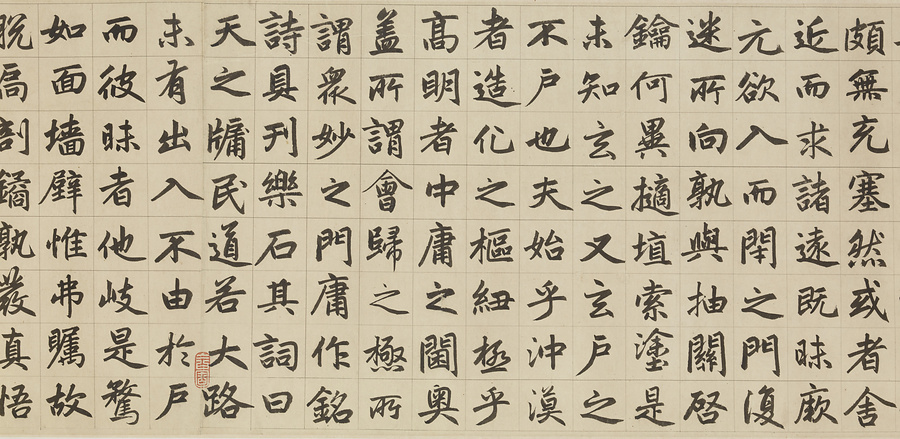 頗無充塞然或者舍
近而求諸遠既昧厥
元欲入而閇之門復
迷所向孰與抽關啓
鑰何異擿埴索塗是
未知玄之又玄戶之
不戶也夫始乎沖漠
者造化之樞紐極乎
高明者中庸之閫奧
盖所謂會歸之極所
謂眾妙之門庸作銘
詩具刊樂石其詞曰
天之牖民道若大路
未有出入不由於戶
而彼昧者他岐是騖
如面墻壁惟弗矚故
脫扃剖鐍孰發真悟